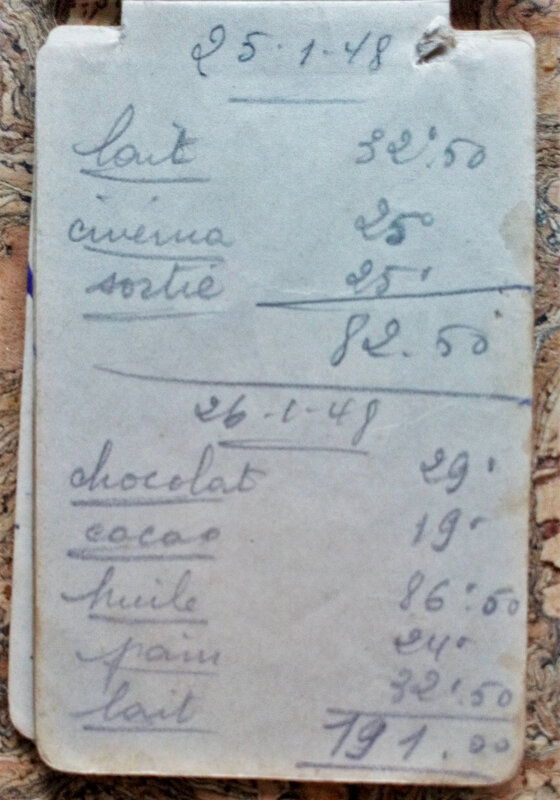 25-1-48
lait 32'.50
cinéma 25'
sortie 25'
82.50
26-1-48
chocolat 29'
cacao 19'
huile 86'.50
pain 24'
lait 32'.50
191.00